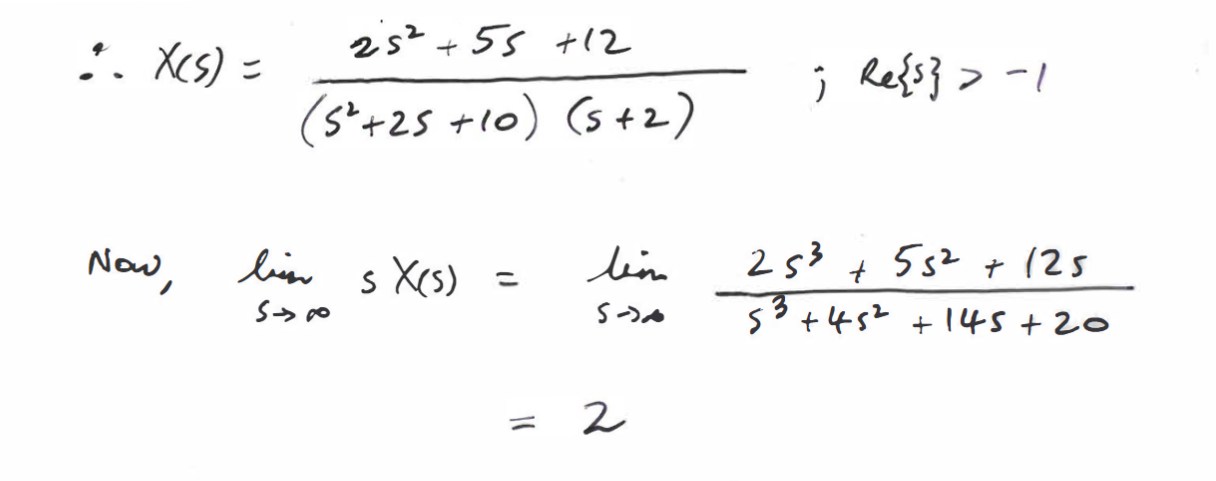 ∴ X(s) = (2s² + 5s + 12) / ((s² + 2s + 10) (s + 2)) ; Re{s} > -1
Now, lim s→∞ s X(s) = lim s→∞ (2s³ + 5s² + 12s) / (s³ + 4s² + 14s + 20)
= 2